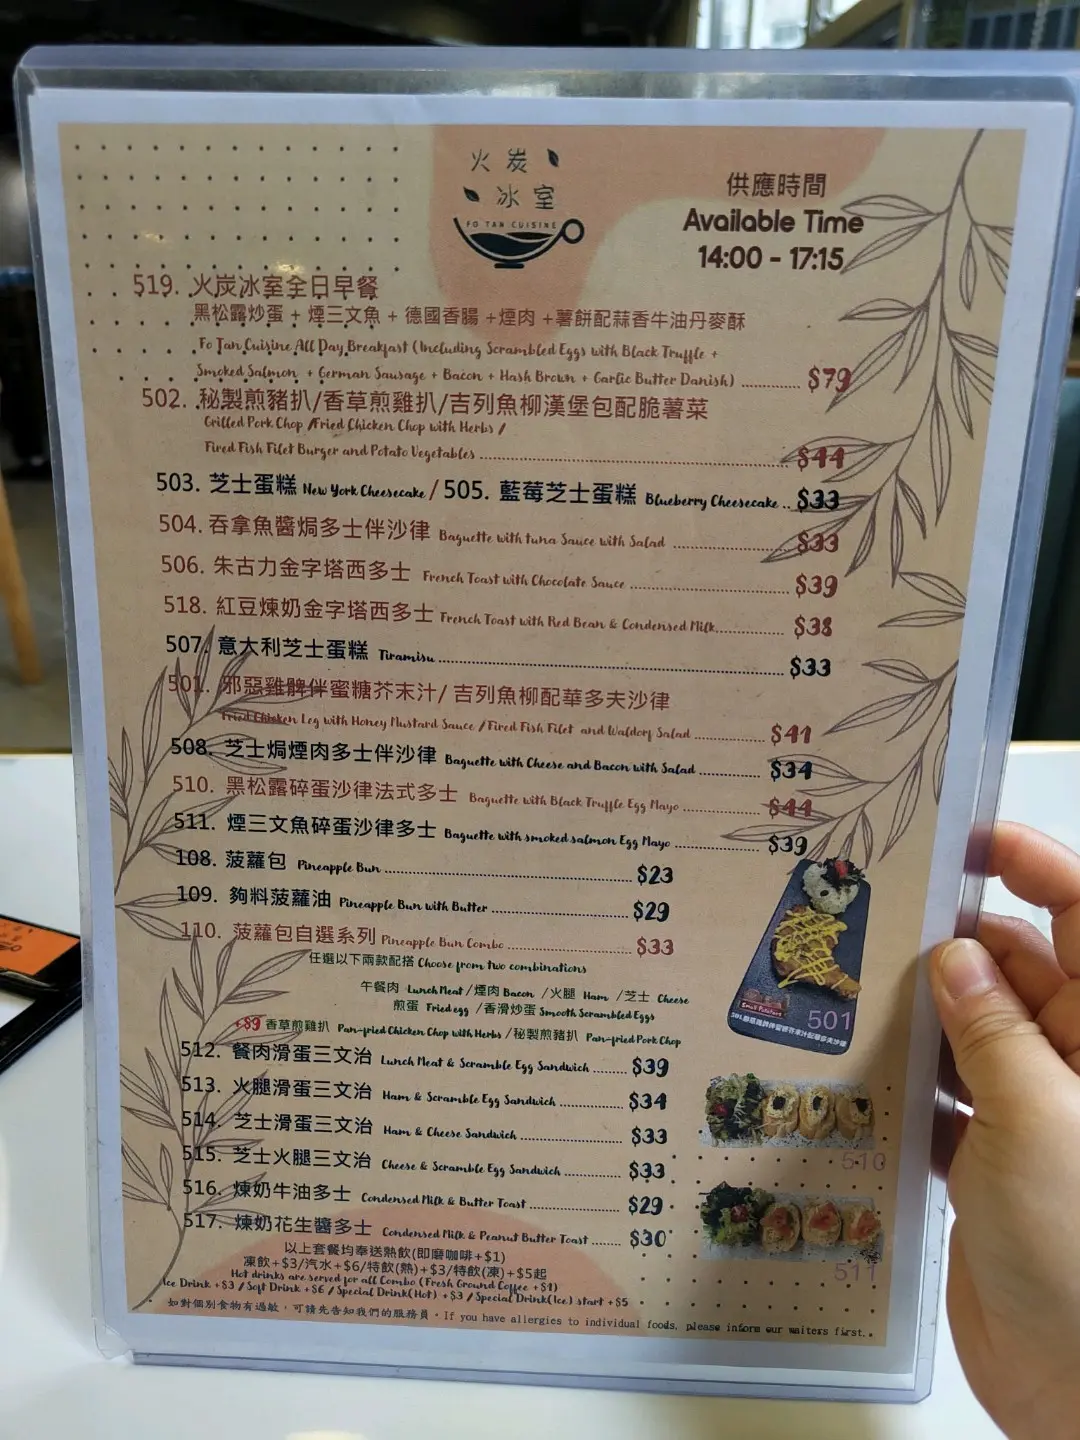 火炭
冰室
FO TAN CUISINE
供應時間
Available Time
14:00 - 17:15
519. 火炭冰室全日早餐
黑松露炒蛋 + 煙三文魚 + 德國香腸 +煙肉 +薯餅配蒜香牛油丹麥酥
Fo Tan Cuisine All Day Breakfast (Including Scrambled Eggs with Black Truffle +
Smoked Salmon + German Sausage + Bacon + Hash Brown + Garlic Butter Danish) ............ $79
502. 秘製煎豬扒/香草煎雞扒/吉列魚柳漢堡包配脆薯菜
Grilled Pork Chop /Fried Chicken Chop with Herbs /
Fired Fish Filet Burger and Potato Vegetables ............ $44
503. 芝士蛋糕 New York Cheesecake / 505. 藍莓芝士蛋糕 Blueberry Cheesecake .. $33
504. 吞拿魚醬焗多士伴沙律 Baguette with tuna Sauce with Salad ............ $33
506. 朱古力金字塔西多士 French Toast with Chocolate Sauce ............ $39
518. 紅豆煉奶金字塔西多士 French Toast with Red Bean & Condensed Milk............ $38
507. 意大利芝士蛋糕 Tiramisu ............ $33
501. 邪惡雞髀伴蜜糖芥末汁/ 吉列魚柳配華多夫沙律
Fried Chicken Leg with Honey Mustard Sauce /Fired Fish Filet and Waldorf Salad ............ $41
508. 芝士焗煙肉多士伴沙律 Baguette with Cheese and Bacon with Salad ............ $34
510. 黑松露碎蛋沙律法式多士 Baguette with Black Truffle Egg Mayo ............ $44
511. 煙三文魚碎蛋沙律多士 Baguette with smoked salmon Egg Mayo ............ $39
108. 菠蘿包 Pineapple Bun ............ $23
109. 夠料菠蘿油 Pineapple Bun with Butter ............ $29
110. 菠蘿包自選系列 Pineapple Bun Combo ............ $33
任選以下兩款配搭 Choose from two combinations
午餐肉 Lunch Meat /煙肉 Bacon /火腿 Ham /芝士 Cheese
煎蛋 Fried egg /香滑炒蛋 Smooth Scrambled Eggs
+$9 香草煎雞扒 Pan-fried Chicken Chop with Herbs /秘製煎豬扒 Pan-fried Pork Chop
512. 餐肉滑蛋三文治 Lunch Meat & Scramble Egg Sandwich ........ $39
513. 火腿滑蛋三文治 Ham & Scramble Egg Sandwich ............ $34
514. 芝士滑蛋三文治 Ham & Cheese Sandwich ............ $33
515. 芝士火腿三文治 Cheese & Scramble Egg Sandwich ............ $33
516. 煉奶牛油多士 Condensed Milk & Butter Toast ............ $29
517. 煉奶花生醬多士 Condensed Milk & Peanut Butter Toast ....... $30
以上套餐均奉送熱飲(即磨咖啡+$1)
凍飲+$3/汽水+$6/特飲(熱)+$3/特飲(凍)+$5起
Hot drinks are served for all Combo (Fresh Ground Coffee +$1)
Ice Drink +$3 / Soft Drink +$6 / Special Drink(Hot) +$3 / Special Drink(Ice) start +$5
如對個別食物有過敏，可請先告知我們的服務員。If you have allergies to individual foods, please inform our waiters first.
501
510
511